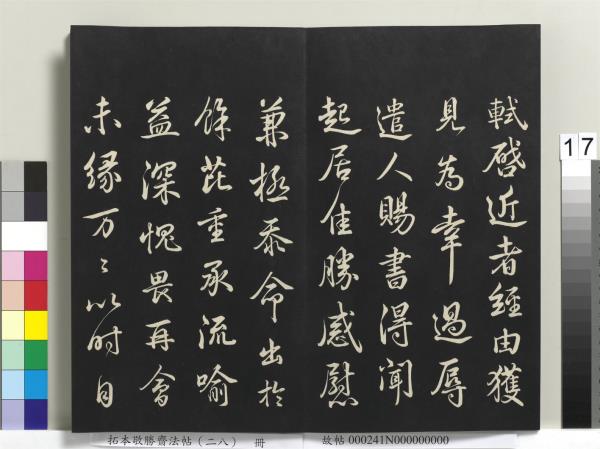 軾啓近者經由獲
見為幸過辱
遣人賜書得聞
起居佳勝感慰
兼極忝命出於
餘芘重承流喻
益深愧畏再會
未緣万〻以时自
17
拓本敬勝齋法帖(二八) 冊 故帖 000241N000000000